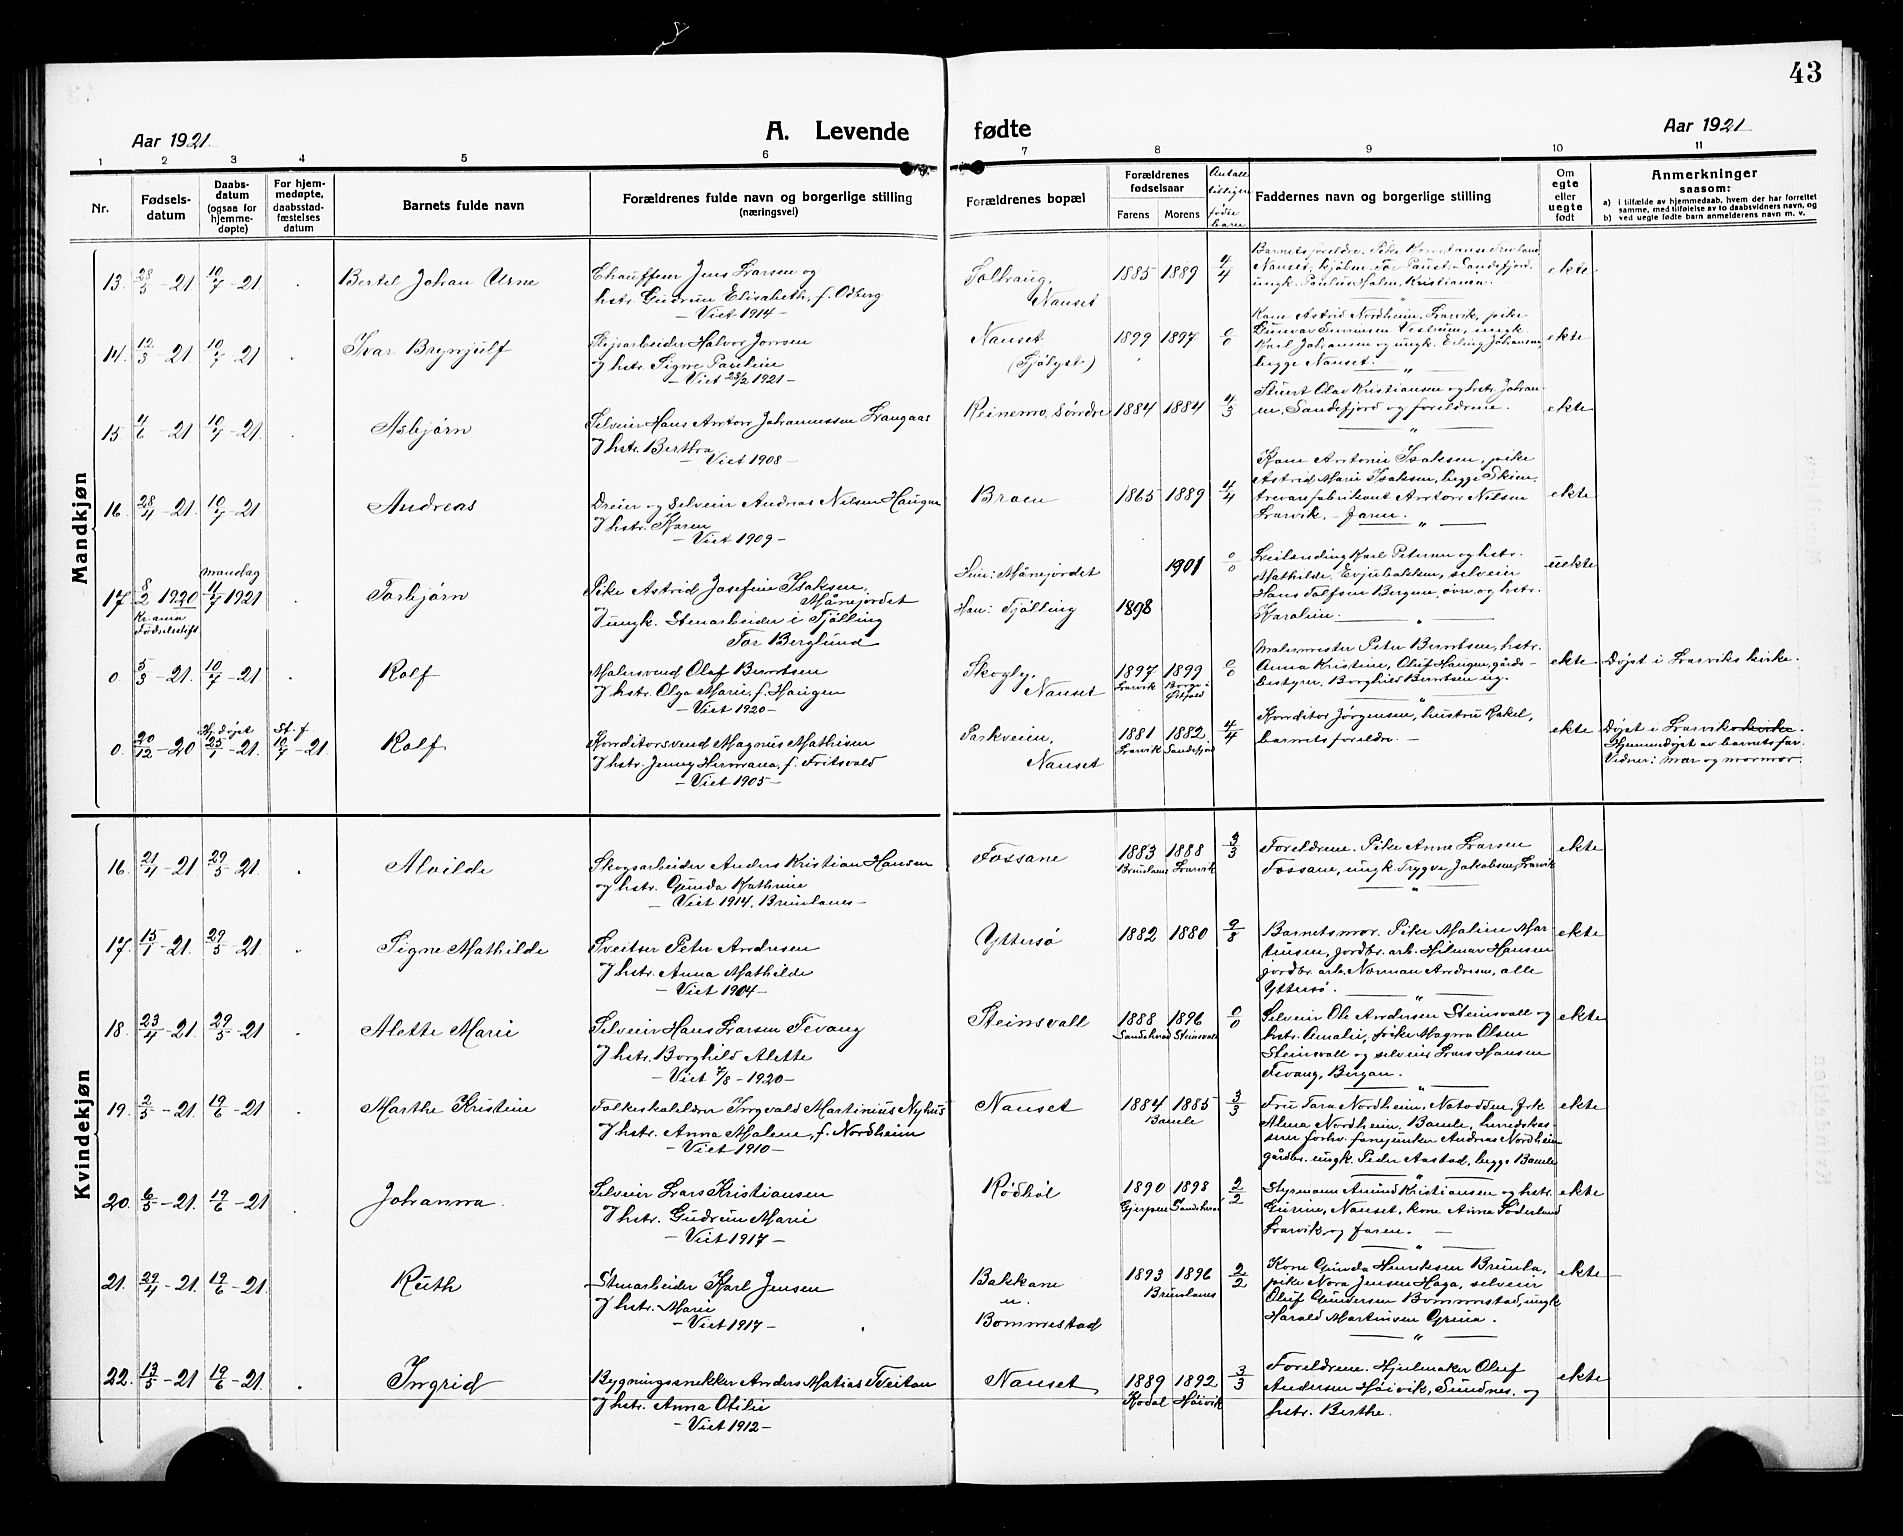 43
Aar 1921.
A. Levende
fødte
Aar 1921
1 2 3 4 5 6 7 8 9 10 11
Nr.
Fødsels-
datum
Daabs-
datum
(ogsaa for
hjemme-
døpte)
For hjem-
medøpte,
daabsstad-
fæstelses
datum
Barnets fulde navn
Forældrenes fulde navn og borgerlige stilling
(næringsvei)
Forældrenes bopæl
Forældrenes
fødselsaar
Farens Morens
Antall
tidligere
fødte
barn
Faddernes navn og borgerlige stilling
Om
egte
eller
uegte
født
Anmerkninger
saasom:
a) i tilfælde av hjemmedaab, hvem der har forrettet
samme, med tilføielse av to daabsvidners navn, og
b) ved uegte fødte barn anmelderens navn m. v.
Mandkjøn
13. 28/3-21 10/7-21 Bertel Johan Urne
Chauffeur Jens Larsen og
hstr. Gudrun Elisabeth, f. Odberg
- Viet 1914 -
Solhaug,
Nanset
1885 1889 4/4
Barnets foreldre. Pike Konstanse
Nanset. Tor Paust, Sandefjord.
ungk. Paulus Holm, Kristiania.
ekte
14. 12/3-21 10/7-21 Ivar Brynjulf
Halvor Jonsen
og hstr. Signe Pauline
- Viet 23/2 1921 -
Nanset
(Fjølyst)
1899 1897 0/0
Kone Astrid Nordheim, Larvik, pike
Gunvor Severinsen Vestrum, ungk.
Karl Johansen og ungk. Erling Johansen,
begge Nanset.
ekte
15 4/6-21 10/7-21 Asbjørn
Selveier Hans Anton Johannessen Langaas
og hstr. Berthea
- Viet 1908 -
Reinemo, søndre
1884 1884 4/3
Stuert Olav Kristiansen og hstr. Johan-
ne, Sandefjord og foreldrene.
ekte
16 28/4-21. 10/7-21 Andreas
Dreier og Selveier Andreas Nilsen Haugen
og hstr. Karen
- Viet 1909 -
Braen
1865 1889 4/4
Kone Antonie Isaksen, pike
Astrid Marie Isaksen, begge Skien,
trevarefabrikant Anton Nilsen
Larvik. - Faren.
ekte
17 8/2 1920 mandag 11/7 1921 Torbjørn
Kr.ania
Fødselsstift
Pike Astrid Josefine Isaksen,
Månejordet
og ungk. Stenarbeider i Tjølling
Tor Berglund
Hun: Månejordet
Han: Tjølling
1898 1901 0/0
Leilending Karl Petersen og hstr.
Mathilde, Evjubakken, selveier
Hans Tolfsen Bergene, øvre og hstr.
Karoline.
uekte
0 5/3-21. 10/7-21 Rolf
Malersvend Olaf Berntsen
og hstr. Olga Marie, f. Haugen
- Viet 1920 -
Skogly,
Nanset
1897 1899 0/0
Larvik Borge i
Østfold
Malermester Peter Berntsen, hstr.
Anna Kristine, Oluf Haugen, gårds-
bestyrer, Borghild Berntsen ug.
ekte Døpt i Larviks kirke.
0. 20/12-20 Hj.døpt 25/7-21. St.f. 10/7-21 Rolf
Konditorsvend Magnus Mathisen
og hstr. Jenny Hermana, f. Fritsvold
- Viet 1905 -
Parkveien,
Nanset
1881 1882 4/4
Larvik Sandefjord
Konditor Jørgensen, hustru Rakel,
barnets foreldre. -
ekte Døpt i Larviks kirke.
Hjemmedøpt av barnets far.
Vidner: mor og mormor.
Kvindekjøn
16. 21/4-21 29/5-21. Alvilde
Skogsarbeider Anders Kristian Hansen
og hstr. Gunda Kathrine
- Viet 1914, Brunlanes -
Fossane
1883 1888 3/3
Brunlanes Larvik
Foreldrene. Pike Anne Larsen
Fossane, ungk. Trygve Jakobsen, Larvik
ekte
17. 15/1-21. 29/5-21 Signe Mathilde
Sveitser Peter Andresen
og hstr. Anna Mathilde
- Viet 1904 -
Yttersø
1882 1880 9/8
Barnets mor. Pike Maline Mar-
tinsen, jordbr. arb. Hilmar Hansen
jordbr. arb. Norman Andresen, alle
Yttersø.
ekte
18. 23/4-21 29/5-21 Alette Marie
Selveier Hans Larsen Fevang
og hstr. Borghild Alette
- Viet 7/8-1920 -
Steinsvall
1888 1896 0/0
Sandeherad Steinsvall
Selveier Ole Andersen Steinsvall og
hstr. Amalie, pike Magna Olsen
Steinsvall og selveier Lars Hansen
Fevang, Bergan.
ekte
19. 2/5-21. 19/6-21 Marthe Kristine
Folkeskolelærer Ingvald Martinius Nyhus
og hstr. Anna Malene, f. Nordheim
- Viet 1910 -
Nanset
1884 1885 3/3
Bamle
Fru Tora Nordheim, Notodden, frk.
Alma Nordheim, Bamle, herredskas-
serer forhv. fanejunker Andreas Nordheim
gårdbr. ungk. Peder Aastad, begge Bamle
ekte
20. 6/5-21. 19/6-21 Johanna.
Selveier Lars Kristiansen
og hstr. Gudrun Marie
- Viet 1917 -
Rødbøl
1890 1898 2/2
Gjerpen Sandeherad
Styrmann Amund Kristiansen og hstr.
Gurine, Nanset, kone Anna Søderlund
Larvik og faren. -
ekte
21. 29/4-21. 19/6-21 Ruth
Stenarbeider Karl Jensen
og hstr. Marie
- Viet 1917 -
Bakkane
u.
Bommestad
1893 1896 2/2
Brunlanes
Kone Gunda Henriksen Brunla,
pike Nora Jensen Haga, selveier
Oluf Gundersen Bommestad, ungk.
Harald Martinsen Grina.
ekte
22. 13/5-21 19/6-21. Ingrid
Bygningssnekker Anders Matias Treitan
og hstr. Anna Otilie
- Viet 1912 -
Nanset
1889 1892 3/3
Kodal Høivik
Foreldrene. Hjulmaker Oluf
Andersen Høivik, Sundnes, og
hstr. Berthe.
ekte